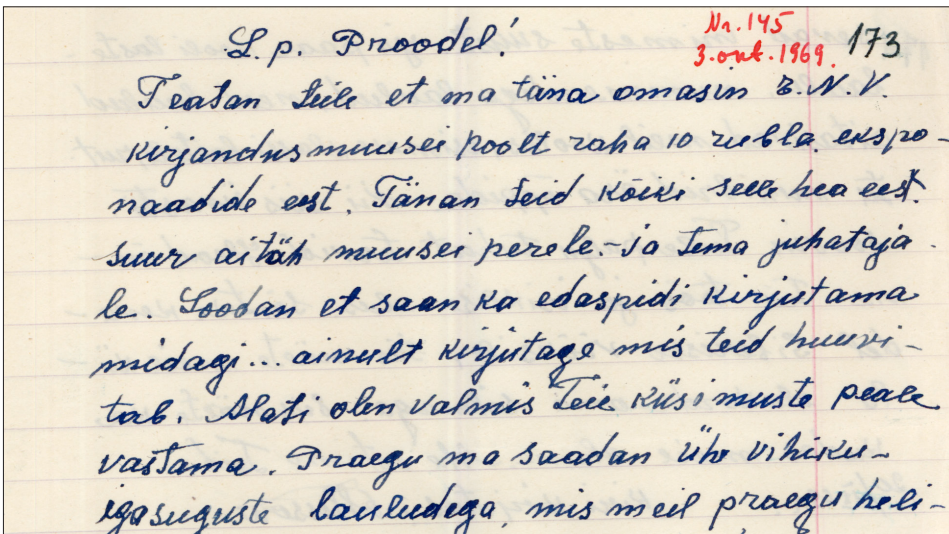 L. p. Proodel!
Nr. 145
3. okt. 1969.
173
Teatan Teile et ma täna omasin E.N.V.
kirjandusmuusei poolt raha 10 rubla, ekspo-
naadide eest. Tänan Teid kõiki selle hea eest.
suur aitäh muusei perele.- ja tema juhataja-
le. Loodan et saan ka edaspidi kirjutama
midagi... ainult kirjutage mis teid huuvi-
tab. Alati olen valmis Teie küsimuste peale
vastama. Praegu ma saadan ühe vihiku-
igasuguste lauludega, mis meil praegu heli-